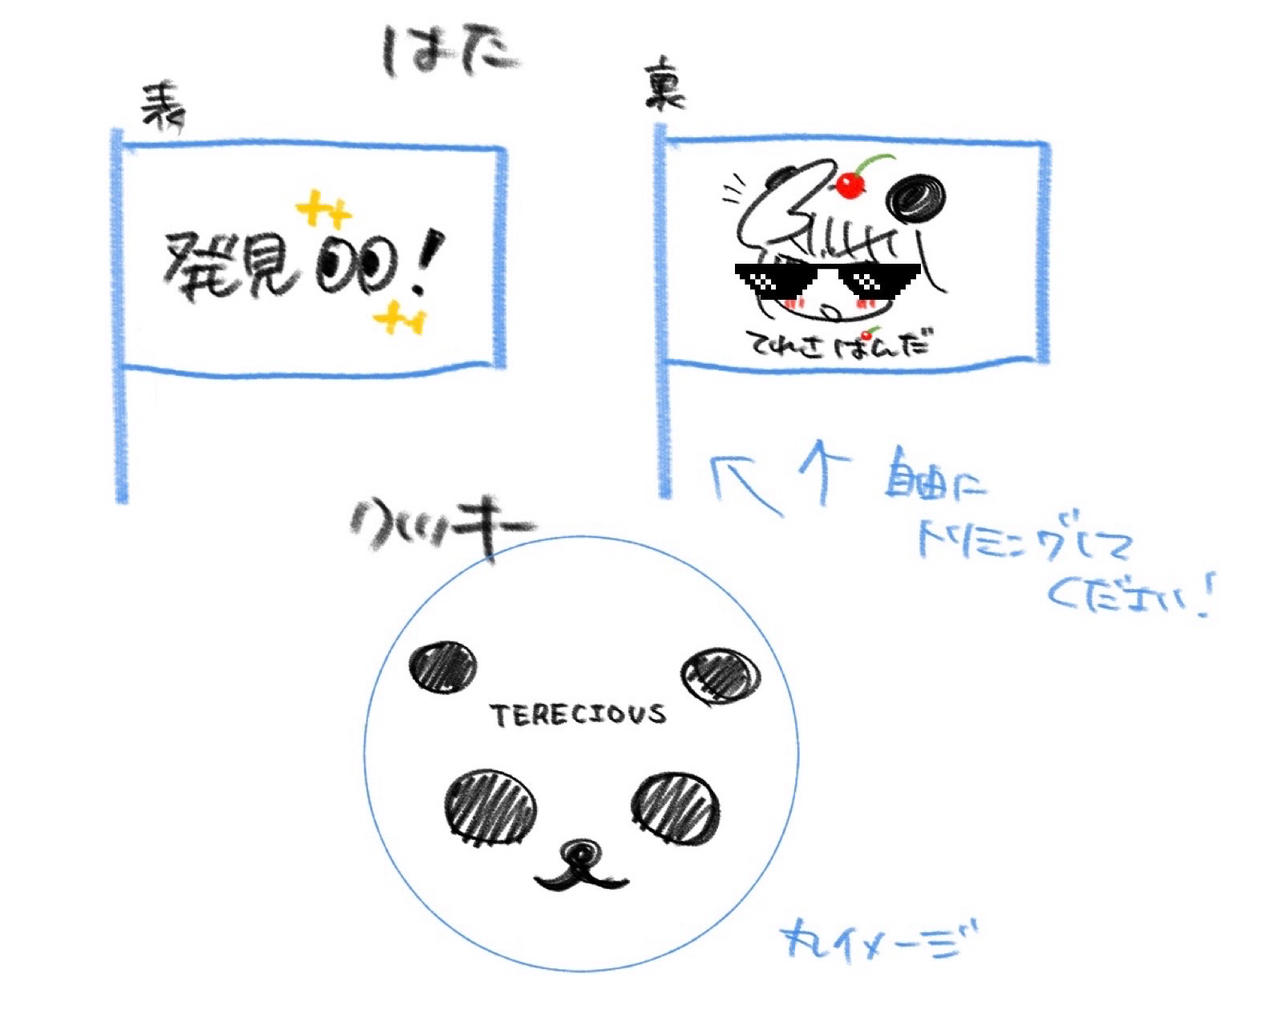 はた
表
裏
発見！
てれさぱんだ
自由に
トリミングして
ください！
クッキー
TERECIOUS
丸イメージ